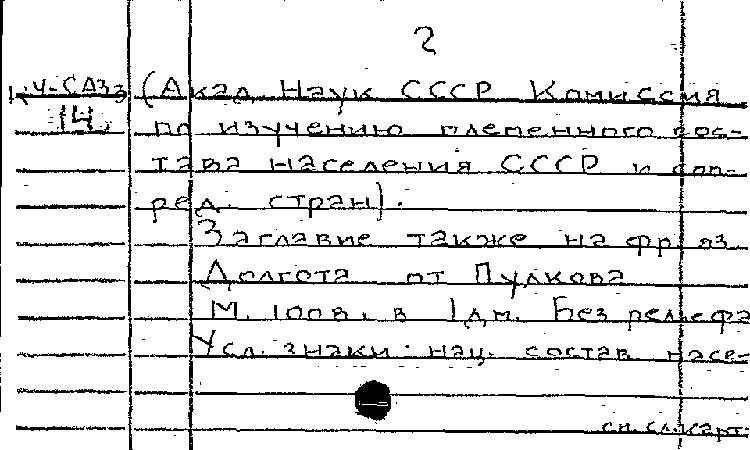 2
(Акад. Наук СССР Комиссия
14.
по изучению племенного сос-
тава населения СССР и соп-
ред. стран).
Заглавие также на фр. яз.
Долгота от Пулкова
М. 100 в. в 1 дм. Без рельефа
Усл. знаки: нац. состав насе-
см. сл. карт.